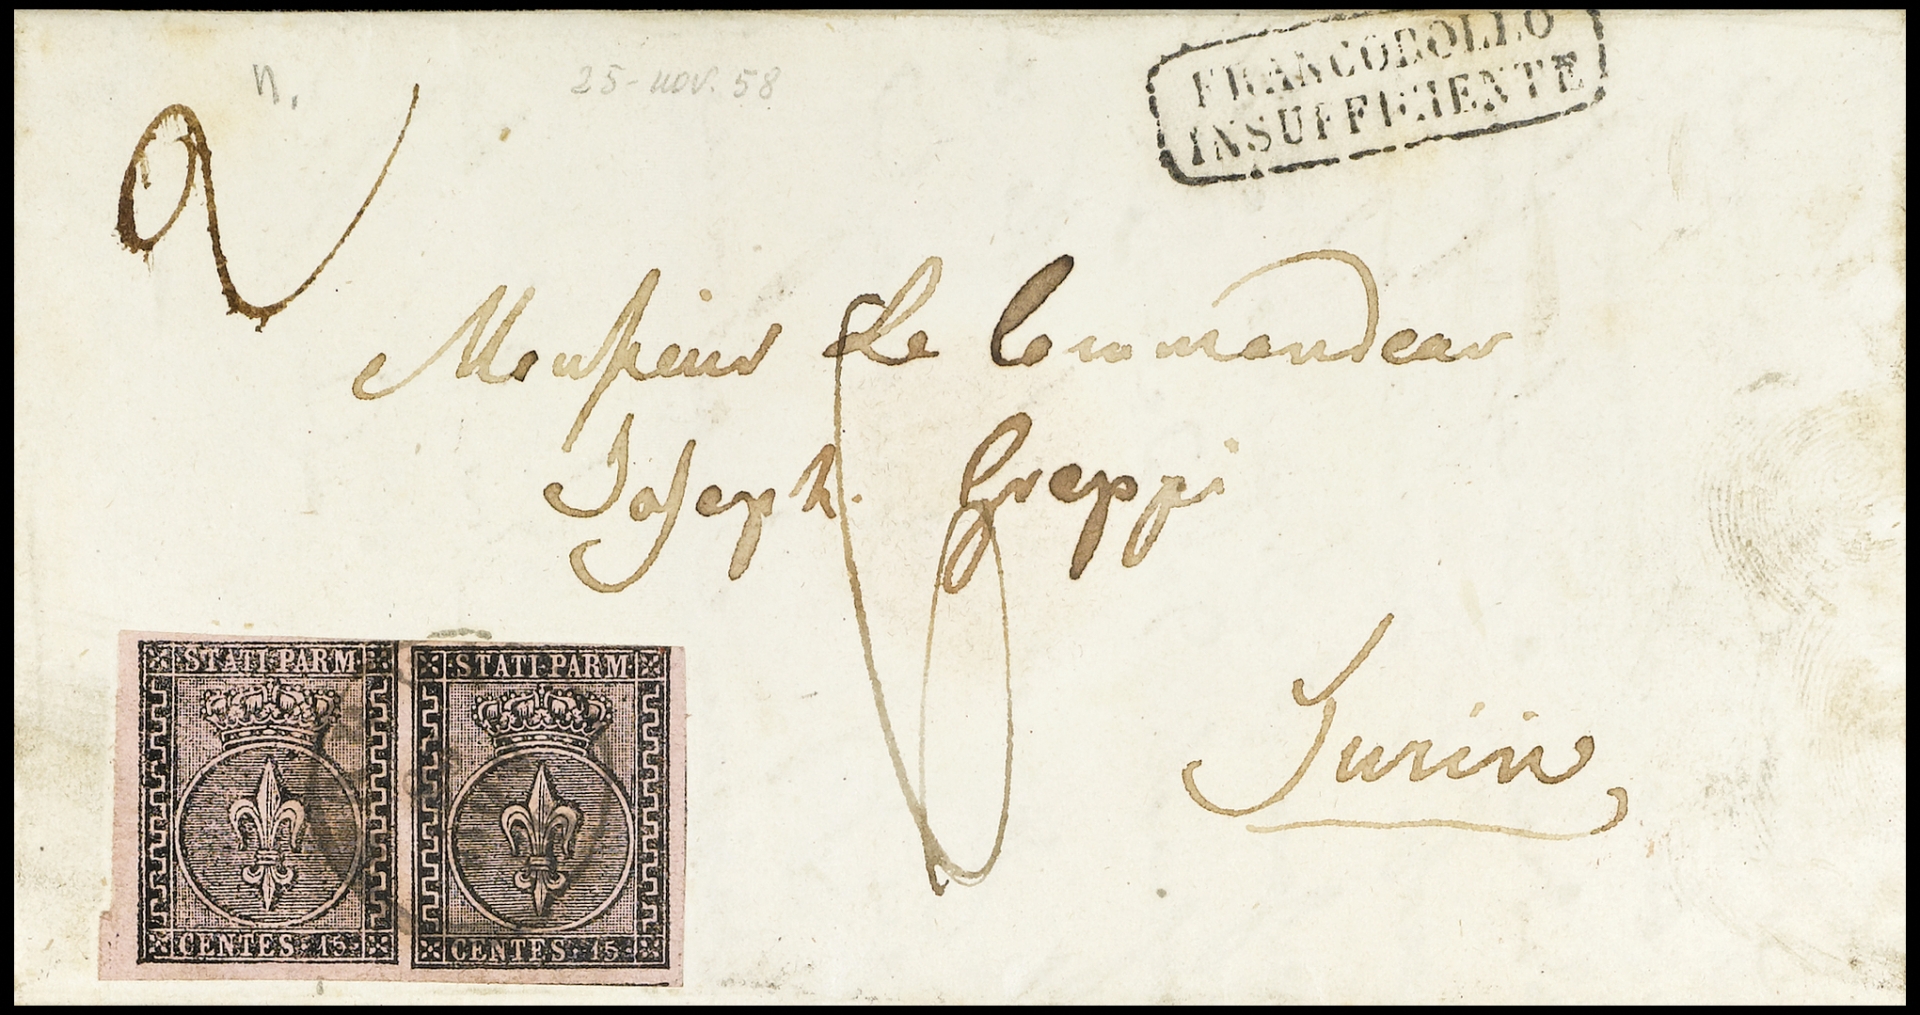 FRANCOBOLLO
INSUFFICIENTE
n.
25-nov. 58
2
Monsieur Le Commandeur
Joseph Greppi
Turin
STATI PARM
CENTES: 15
STATI PARM
CENTES: 15